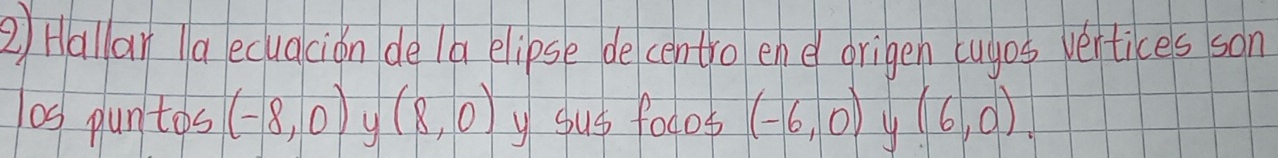 2) Hallar la ecuación de la elipse de centro en el origen cuyos vértices son
los puntos (-8,0) y (8,0) y sus focos (-6,0) y (6,0).